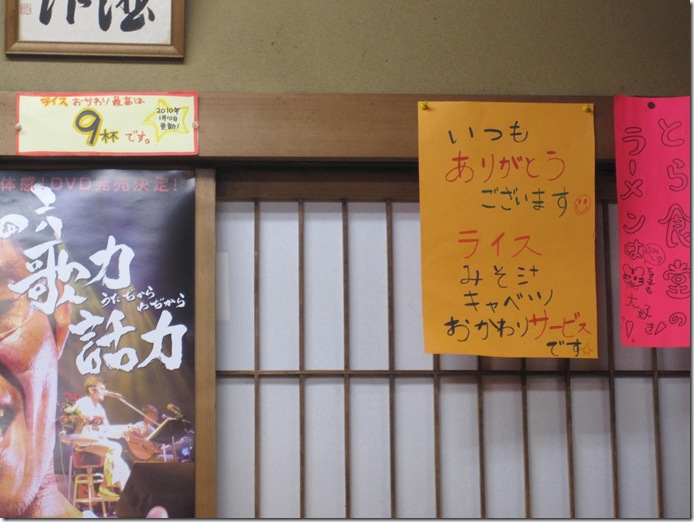 ライス おかわり 最高は
9杯です。
2010年
1月10日
更新!
体感!DVD発売決定!
歌力
うたぢから
話力
わぢから
いつも
ありがとう
ございます
ライス
みそ汁
キャベツ
おかわりサービス
です
とら食堂の
ラーメン味
大好き!!